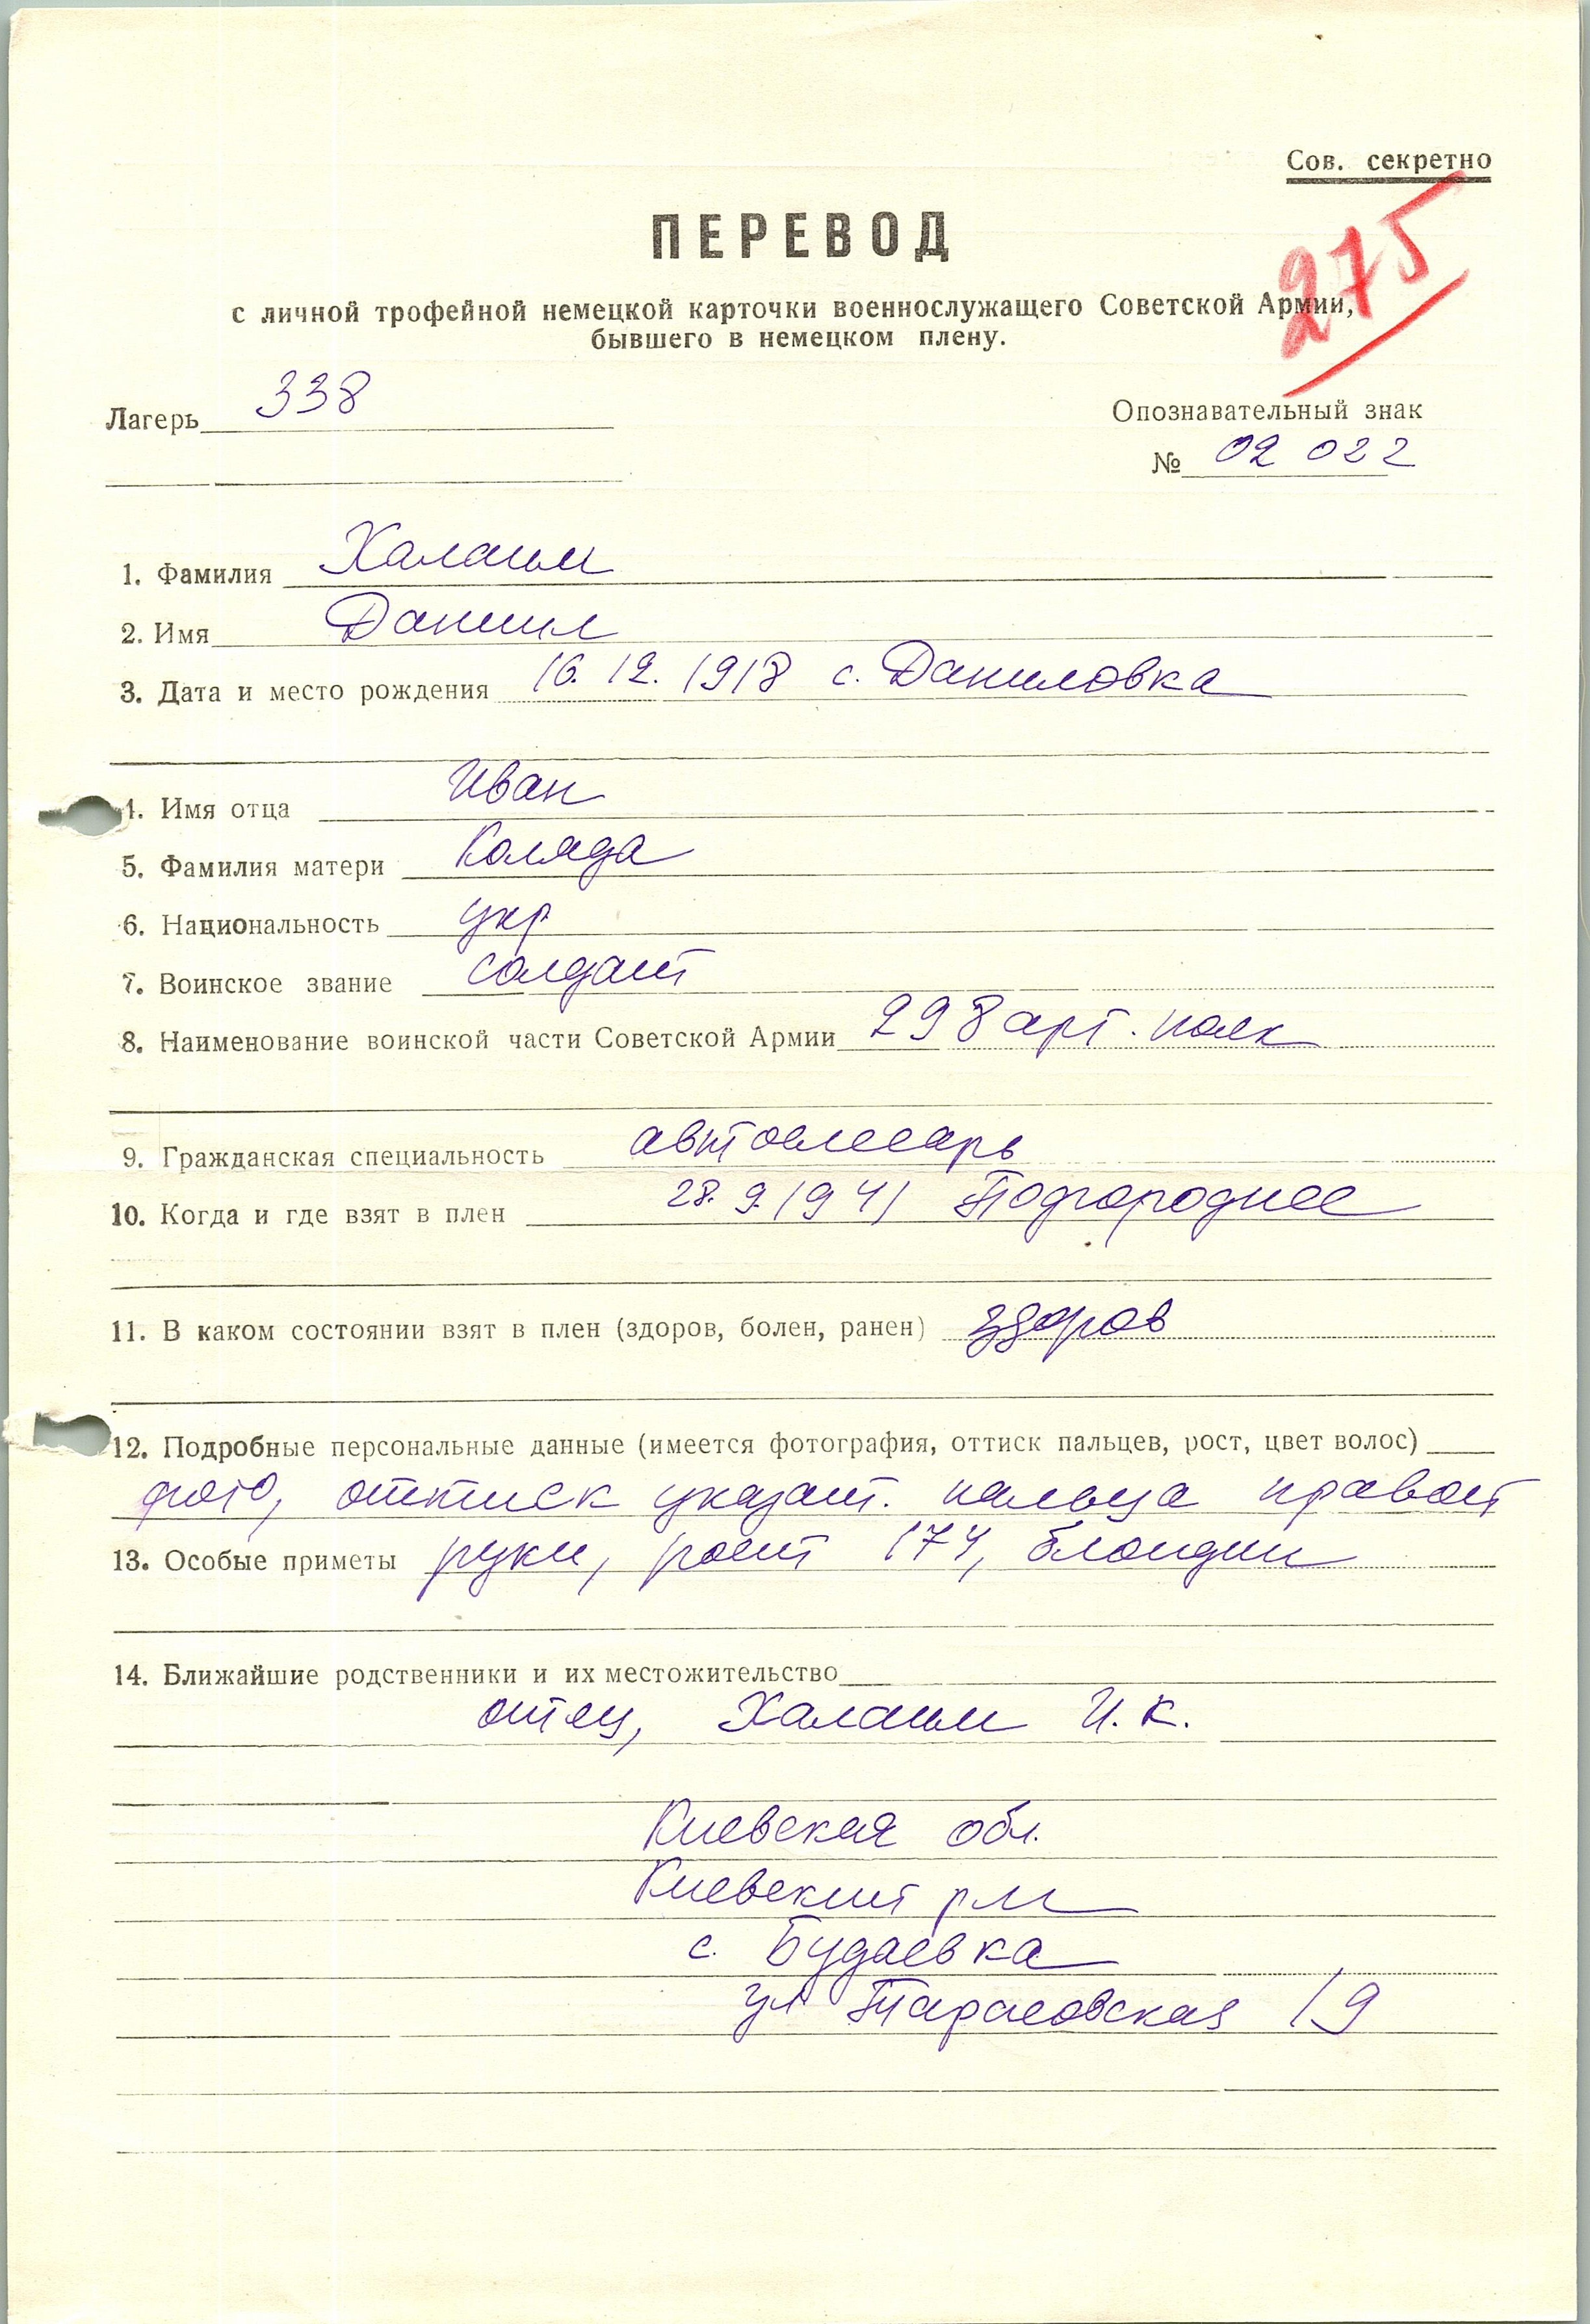 Сов. секретно
ПЕРЕВОД
275
с личной трофейной немецкой карточки военнослужащего Советской Армии,
бывшего в немецком плену.
Лагерь 338
Опознавательный знак
№ 02 022
1. Фамилия Халаим
2. Имя Даниил
3. Дата и место рождения 16. 12. 1918 с. Даниловка
4. Имя отца Иван
5. Фамилия матери Коляда
6. Национальность укр
7. Воинское звание солдат
8. Наименование воинской части Советской Армии 298 арт. полк
9. Гражданская специальность автослесарь
10. Когда и где взят в плен 28. 9. 1941 Подгороднее
11. В каком состоянии взят в плен (здоров, болен, ранен) здоров
12. Подробные персональные данные (имеется фотография, оттиск пальцев, рост, цвет волос)
фото, оттиск указат. пальца правой
13. Особые приметы руки, рост 174, блондин
14. Ближайшие родственники и их местожительство
отец, Халаим И. К.
Киевская обл.
Киевский р-н
с. Будаевка
ул Тарасовская 19